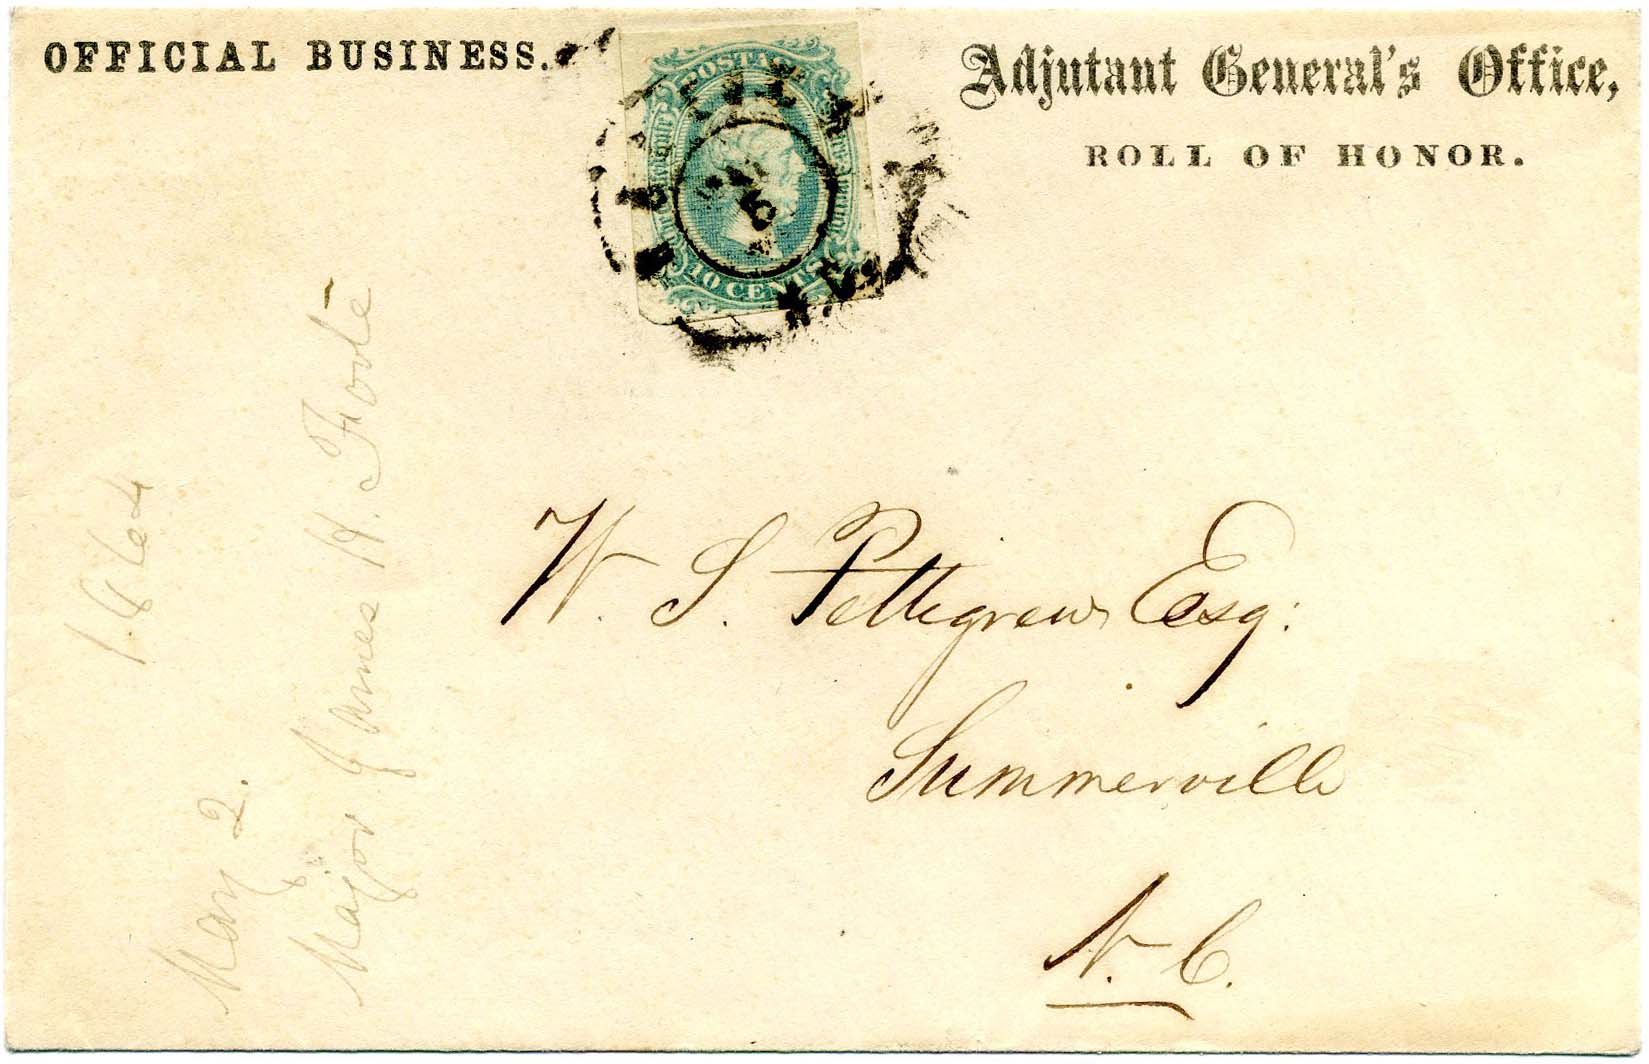 OFFICIAL BUSINESS.
Adjutant General's Office,
ROLL OF HONOR.
POSTAGE
10 CENTS
W. S. Pettigrew Esq:
Summerville
N. C.
May 2. 1864
Major James H. Foote